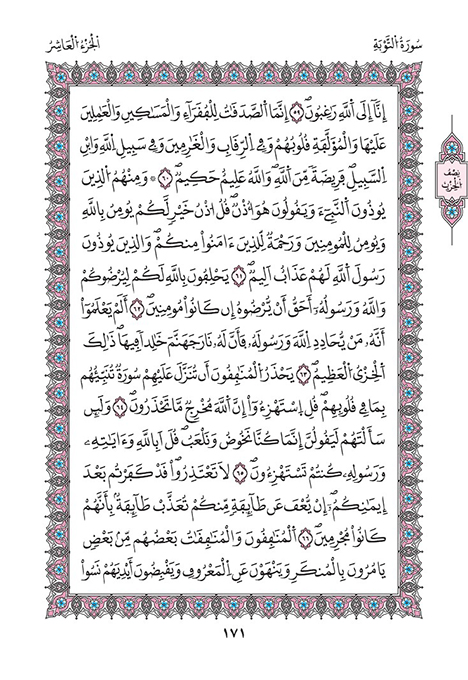 سُورَةُ التَّوْبَةِ
الْجُزْءُ الْعَاشِرُ
إِنَّآ إِلَى اَللَّهِ رَٰغِبُونَۖ ٥٩ إِنَّمَا اَلصَّدَقَٰتُ لِلْفُقَرَآءِ وَالْمَسَٰكِينِ وَالْعَٰمِلِينَ
عَلَيْهَا وَالْمُؤَلَّفَةِ قُلُوبُهُمْ وَفِي اِلرِّقَابِ وَالْغَٰرِمِينَ وَفِي سَبِيلِ اِللَّهِ وَابْنِ
اِلسَّبِيلِۖ فَرِيضَةٗ مِّنَ اَللَّهِۖ وَاللَّهُ عَلِيمٌ حَكِيمٞۖ ٦٠ ۞ وَمِنْهُمُ اُلذِينَ
يُوذُونَ اَلنَّبِيٓءَ وَيَقُولُونَ هُوَ أُذْنٞۖ قُلُ اذْنُ خَيْرٖ لَّكُمْ يُومِنُ بِاللَّهِ
وَيُومِنُ لِلْمُومِنِينَ وَرَحْمَةٞ لِّلذِينَ ءَامَنُواْ مِنكُمْۖ وَالذِينَ يُوذُونَ
رَسُولَ اَللَّهِ لَهُمْ عَذَابٌ اَلِيمٞۖ ٦١ يَحْلِفُونَ بِاللَّهِ لَكُمْ لِيُرْضُوكُمْ
وَاللَّهُ وَرَسُولُهُۥٓ أَحَقُّ أَنْ يُّرْضُوهُ إِن كَانُواْ مُومِنِينَۖ ٦٢ أَلَمْ يَعْلَمُوٓاْ
أَنَّهُۥ مَنْ يُّحَادِدِ اِللَّهَ وَرَسُولَهُۥ فَأَنَّ لَهُۥ نَارَ جَهَنَّمَ خَٰلِداٗ فِيهَاۖ ذَٰلِكَ
اَلْخِزْيُ اُلْعَظِيمُۖ ٦٣ يَحْذَرُ اُلْمُنَٰفِقُونَ أَن تُنَزَّلَ عَلَيْهِمْ سُورَةٞ تُنَبِّئُهُم
بِمَا فِي قُلُوبِهِمْۖ قُلِ اِسْتَهْزِءُوٓاْ إِنَّ اَللَّهَ مُخْرِجٞ مَّا تَحْذَرُونَۖ ٦٤ وَلَئِن
سَأَلْتَهُمْ لَيَقُولُنَّ إِنَّمَا كُنَّا نَخُوضُ وَنَلْعَبُۖ قُلَ اَبِاللَّهِ وَءَايَٰتِهِۦ
وَرَسُولِهِۦ كُنتُمْ تَسْتَهْزِءُونَۖ ٦٥ لَا تَعْتَذِرُواْ قَدْ كَفَرْتُم بَعْدَ
إِيمَٰنِكُمْۖ إِنْ يُّعْفَ عَن طَآئِفَةٖ مِّنكُمْ تُعَذَّبْ طَآئِفَةُۢ بِأَنَّهُمْ
كَانُواْ مُجْرِمِينَۖ ٦٦ اَلْمُنَٰفِقُونَ وَالْمُنَٰفِقَٰتُ بَعْضُهُم مِّنۢ بَعْضٖ
يَامُرُونَ بِالْمُنكَرِ وَيَنْهَوْنَ عَنِ اِلْمَعْرُوفِ وَيَقْبِضُونَ أَيْدِيَهُمْ نَسُواْ
نِصْفُ
الْحِزْبِ
١٧١